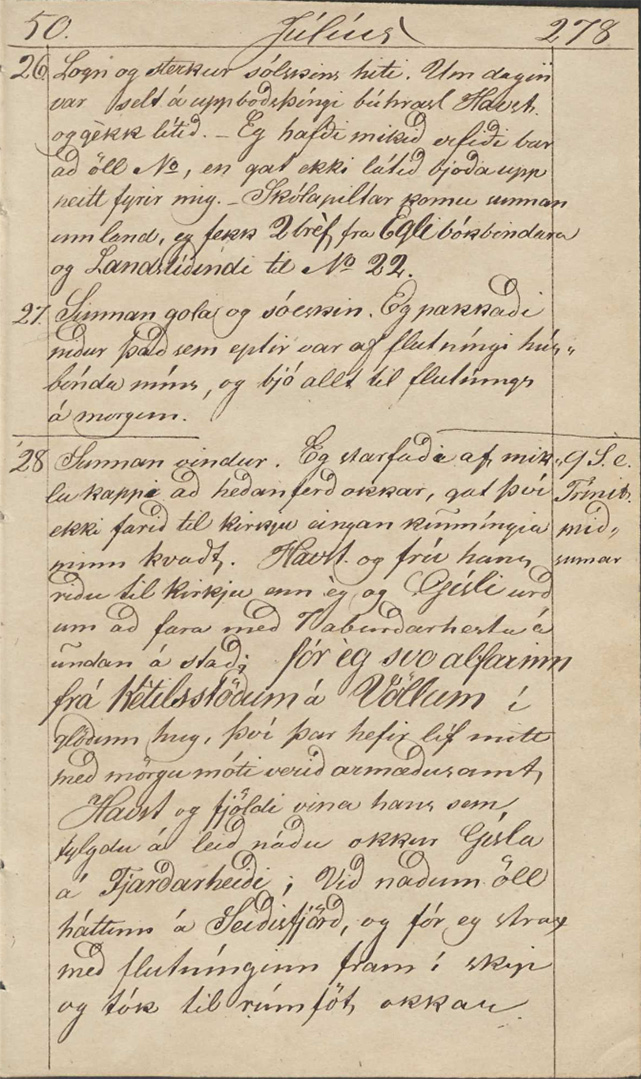 50. Júlíus 278
26 Logn og sterkur sólskins hiti. Um dagin̄
var selt á uppboðsþíngi búhrasl Havst.
og gèkk lítið. - Eg hafði mikið erfiði bar
að öll No, en gat ekki látið bjoða upp
neitt fyrir mig. - Skólapiltar komu sunnan
um land, eg fekk 2 brèf fra Egli bókbindara
og Landstíðindi til No 22.
27. Sunnan gola og sólskin. Eg pakkaði
niður það sem eptir var af flutníngi hús„
bónda míns, og bjó allt til flutnings
á morgun.
28 Sunnan vindur. Eg starfaði af mik„ 9 S. e.
lu kappi að hedanferd okkar, gat því Trinit.
ekki farið til kirkju eingan kun̄níngia mid„
minn kvadt. Havst. og frú hans sumar
riðu til kirkju enn èg og Gísli urð
um að fara með 7 aburdarhesta á
undan á stað; fór èg svo alfarinn
frá Ketilsstöðum á Völlum í
glöðum hug, því þar hefir líf mitt
með mörgu móti verið armædusamt,
Havst og fjöldi vina hans sem
fylgdu á leið náðu okkur Gísla
á Fjarðarheiði; Við naðum öll
háttum á Seidisfjörð, og fór eg strax
með flutnínginn fram í skip
og tók til rúmföt okkar.